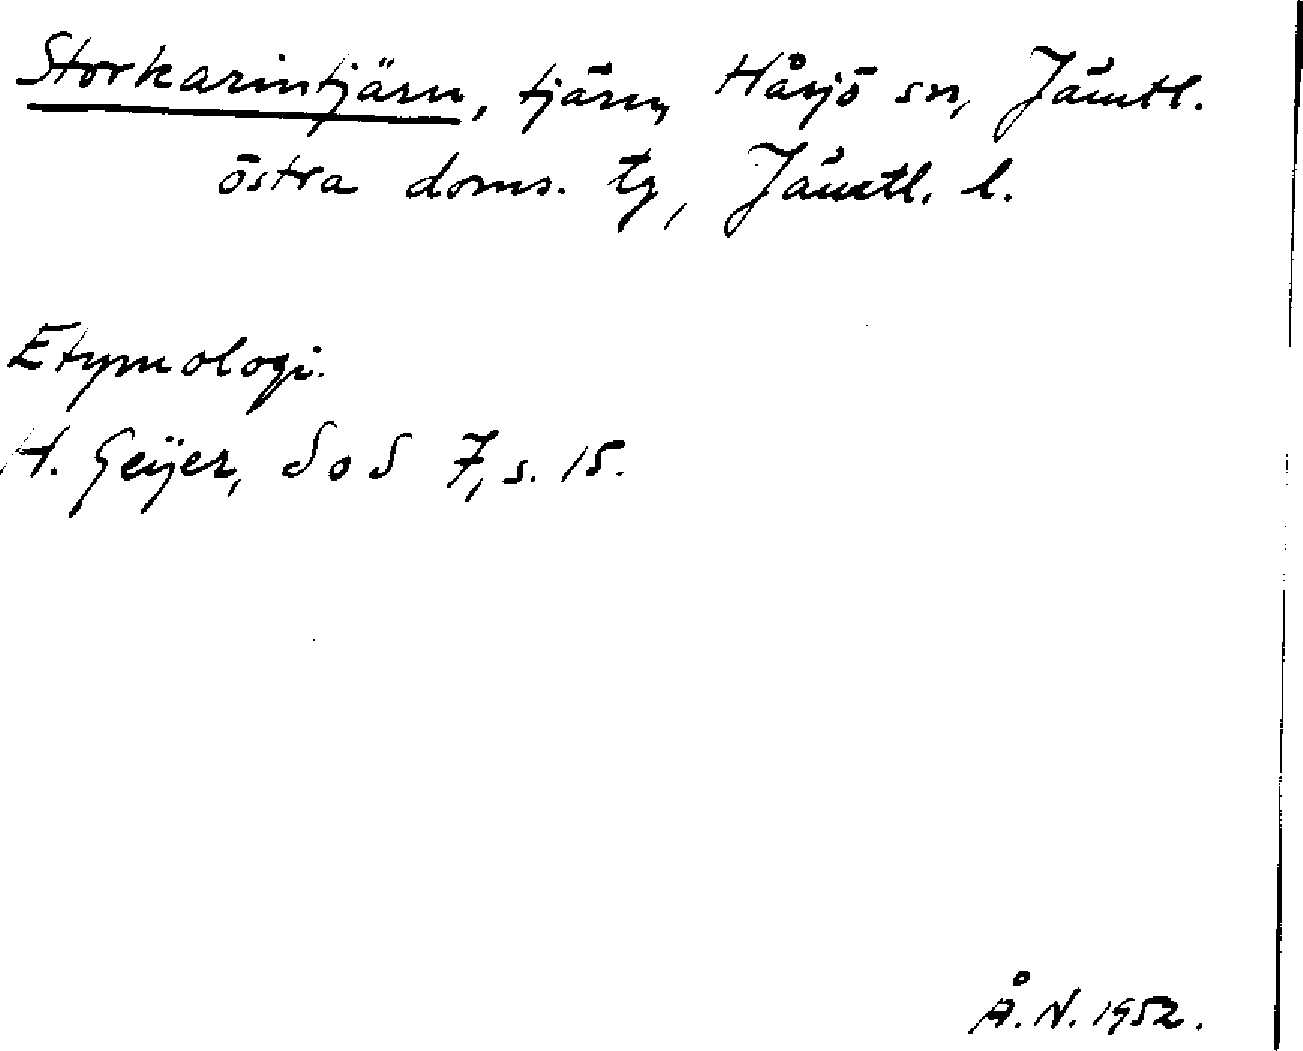 Storkarintjärn, tjärn, Håsjö sn, Jämtl.
östra doms. tg, Jämtl. l.
Etymologi.
H. Geijer, SoS 7, s. 15.
Å. N. 1952.